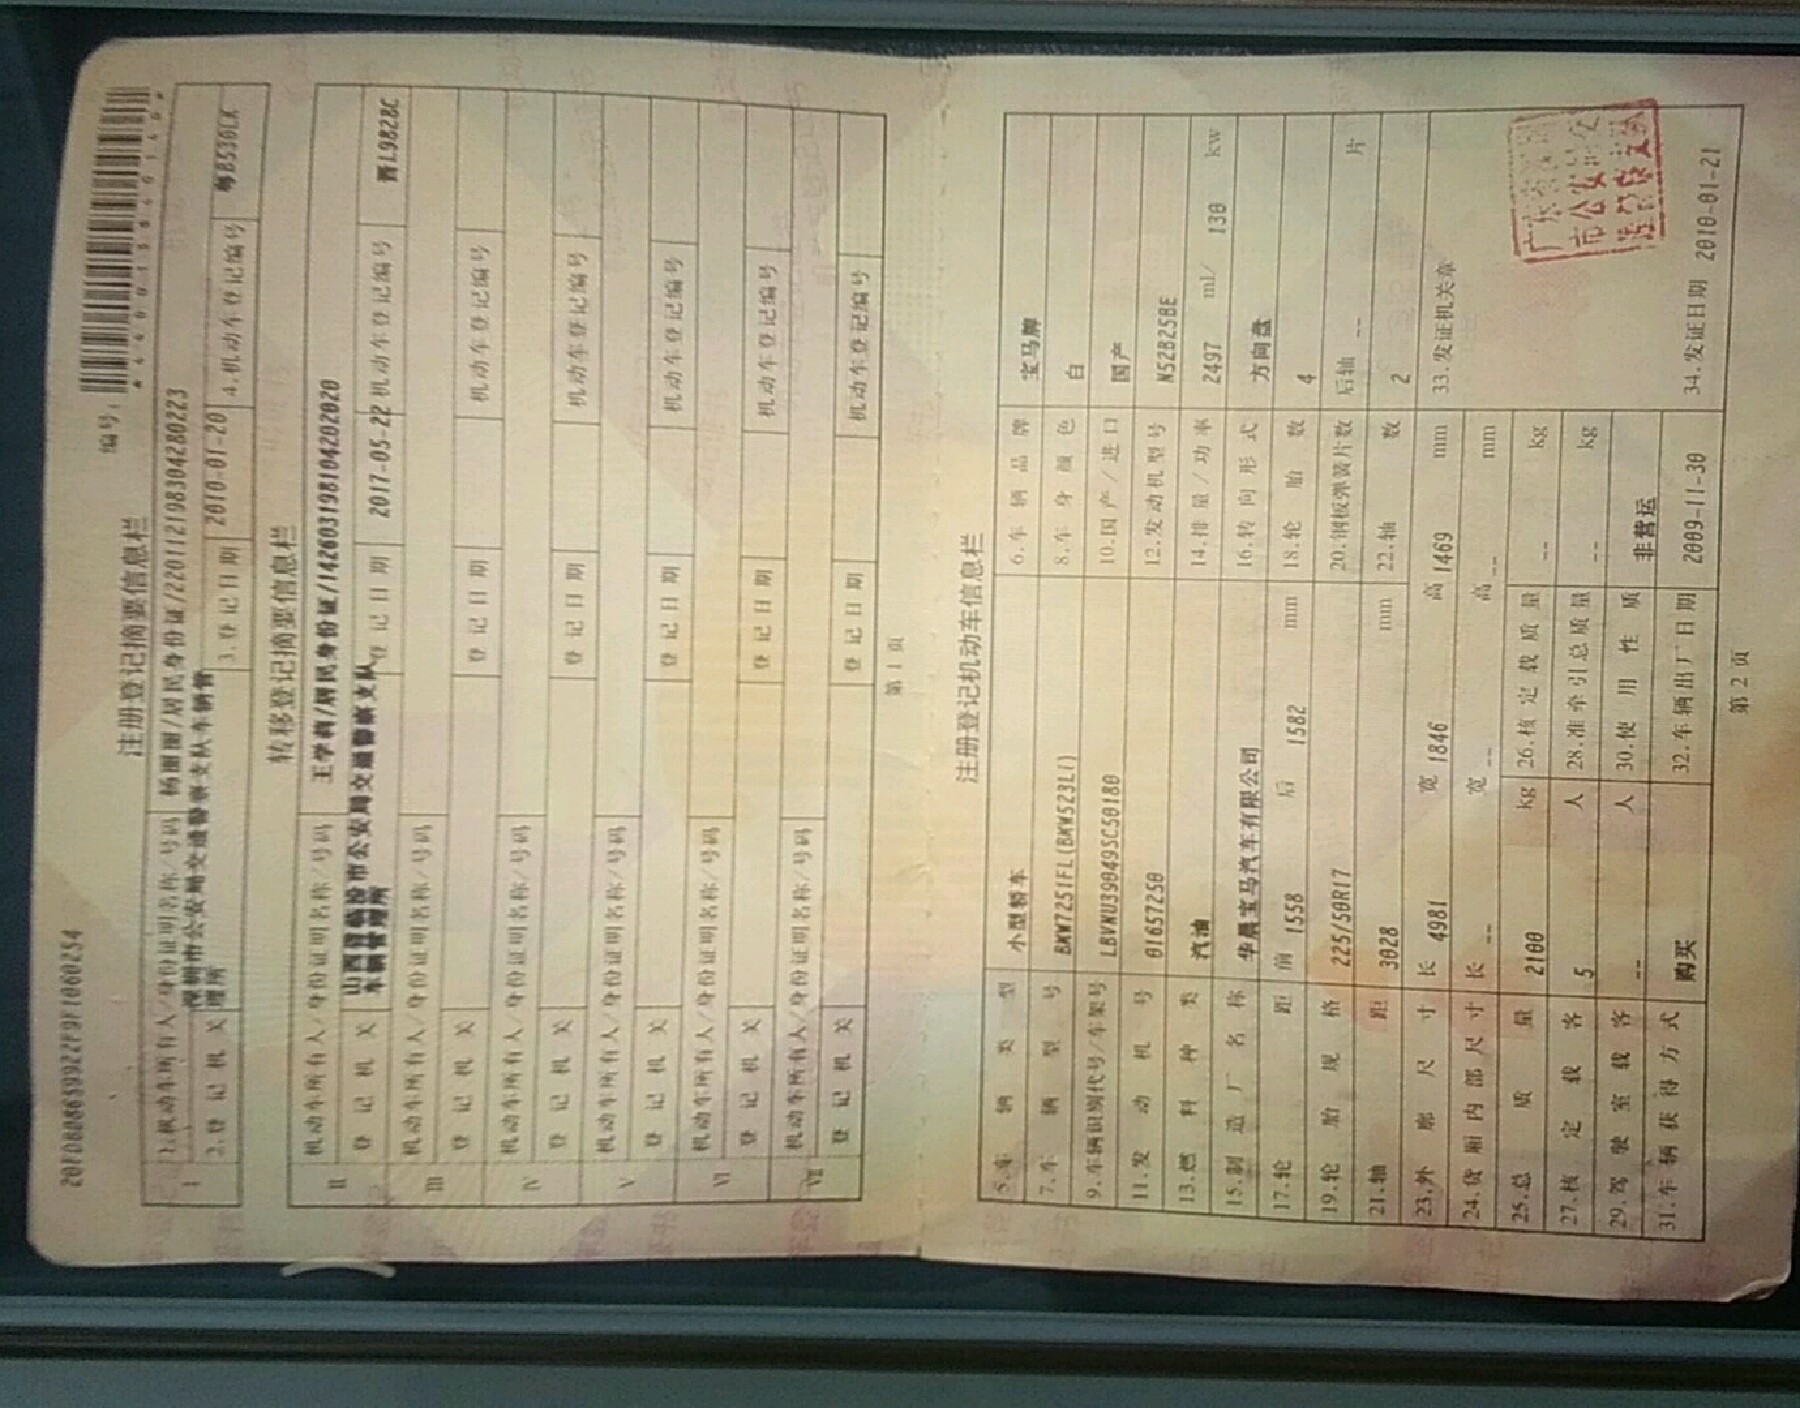 编号:
注册登记摘要信息栏
I 1.机动车所有人/身份证明名称/号码 杨丽丽/居民身份证/220112198304280223
2.登记机关 深圳市公安局交通警察支队车辆管理所 3.登记日期 2010-01-20 4.机动车登记编号 粤B530LK
转移登记摘要信息栏
II 机动车所有人/身份证明名称/号码 王学莉/居民身份证/142603198104202020
登记机关 山西省临汾市公安局交通警察支队车辆管理所 登记日期 2017-05-22 机动车登记编号 晋L9828C
III 机动车所有人/身份证明名称/号码
登记机关 登记日期 机动车登记编号
IV 机动车所有人/身份证明名称/号码
登记机关 登记日期 机动车登记编号
V 机动车所有人/身份证明名称/号码
登记机关 登记日期 机动车登记编号
VI 机动车所有人/身份证明名称/号码
登记机关 登记日期 机动车登记编号
VII 机动车所有人/身份证明名称/号码
登记机关 登记日期 机动车登记编号
第1页
注册登记机动车信息栏
5.车辆类型 小型轿车 6.车辆品牌 宝马牌
7.车辆型号 BMW7251FL(BMW523LI) 8.车身颜色 白
9.车辆识别代号/车架号 LBVNU39049SC50180 10.国产/进口 国产
11.发动机号 01657250 12.发动机型号 N52B25BE
13.燃料种类 汽油 14.排量/功率 2497 ml/ 130 kw
15.制造厂名称 华晨宝马汽车有限公司 16.转向形式 方向盘
17.轮距 前 1558 后 1582 mm 18.轮胎数 4
19.轮胎规格 225/50R17 20.钢板弹簧片数 后轴 -- 片
21.轴距 3028 mm 22.轴数 2
23.外廓尺寸 长 4981 宽 1846 高 1469 mm 33.发证机关章
24.货厢内部尺寸 长 -- 宽 -- 高 -- mm
25.总质量 2100 kg 26.核定载质量 -- kg
27.核定载客 5 人 28.准牵引总质量 -- kg
29.驾驶室载客 -- 人 30.使用性质 非营运
31.车辆获得方式 购买 32.车辆出厂日期 2009-11-30 34.发证日期 2010-01-21
第2页